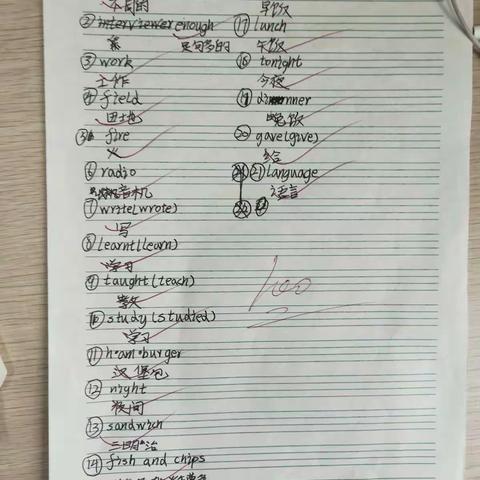 ② enough
足够多的
③ work
工作
④ field
田地
⑤ fire
火
⑥ radio
音机
⑦ write(wrote)
写
⑧ learnt(learn)
学习
⑨ taught(teach)
教
⑩ study(studied)
学习
⑪ hamburger
汉堡包
⑫ night
夜间
⑬ sandwich
三明治
⑭ fish and chips
早饭
⑰ lunch
午饭
⑱ tonight
今夜
⑲ dinner
晚饭
⑳ gave(give)
给
㉑ language
语言
100